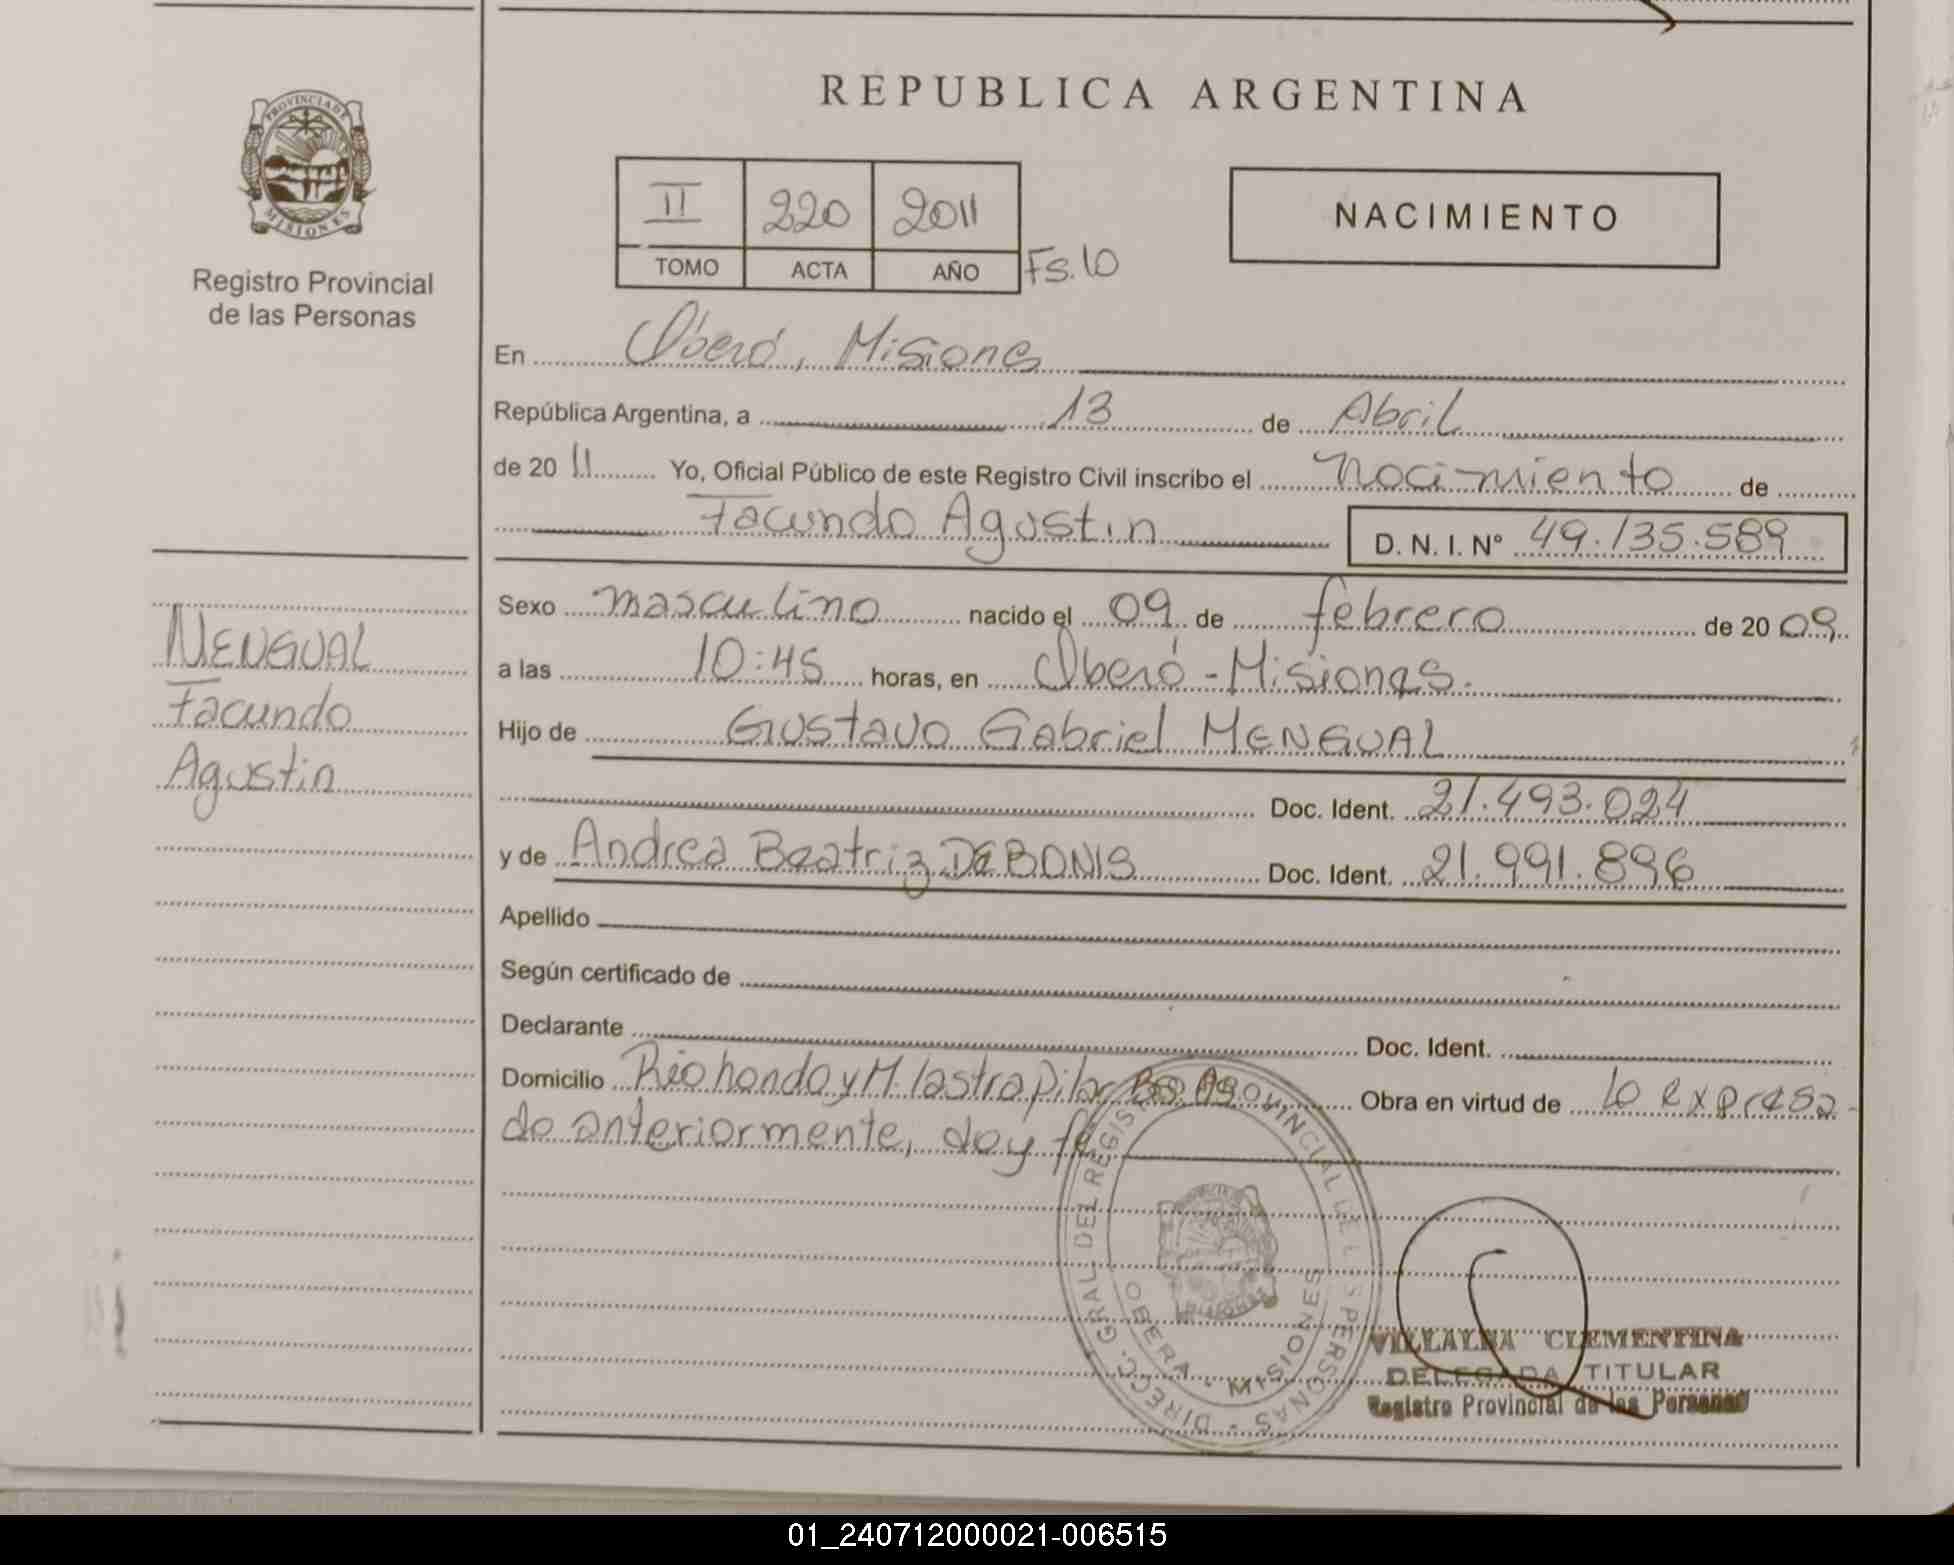 REPUBLICA ARGENTINA
PROVINCIA DE
MISIONES
Registro Provincial
de las Personas
II 220 2011
TOMO ACTA AÑO Fs. 10
NACIMIENTO
En Oberá, Misiones
República Argentina, a 13 de Abril
de 20 11 Yo, Oficial Público de este Registro Civil inscribo el nacimiento de
Facundo Agustin D. N. I. N° 49.135.589
MENGUAL
Facundo
Agustin
Sexo masculino nacido el 09 de febrero de 20 09
a las 10:45 horas, en Oberá - Misiones.
Hijo de Gustavo Gabriel MENGUAL
Doc. Ident. 21.493.024
y de Andrea Beatriz DE BONIS Doc. Ident. 21.991.896
Apellido
Según certificado de
Declarante Doc. Ident.
Domicilio Rio hondo y M. lastra pilar Bs. As. Obra en virtud de lo expresa-
do anteriormente, doy fe
DIRECC. GRAL. DEL REGISTRO PROVINCIAL DE LAS PERSONAS
OBERA - MISIONES
VILLALBA CLEMENTINA
DELEGADA TITULAR
Registro Provincial de las Personas
01_240712000021-006515